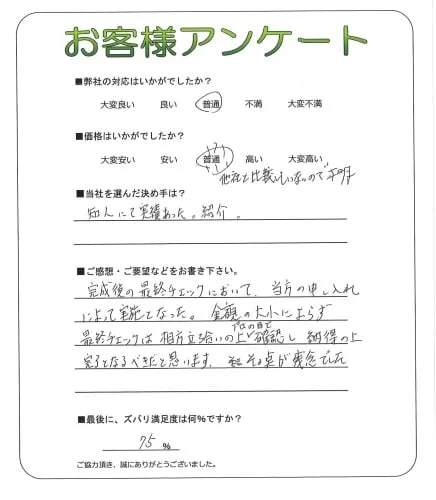 お客様アンケート
■弊社の対応はいかがでしたか?
大変良い 良い 普通 不満 大変不満
■価格はいかがでしたか?
大変安い 安い 普通 高い 大変高い
他社と比較していないので不明
■当社を選んだ決め手は?
知人にて実績あった。紹介。
■ご感想・ご要望などをお書き下さい。
完成後の最終チェックにおいて、当方の申し入れ
によって実施となった。金額の大小によらず
プロの目で
最終チェックは相方立ち合いの上 確認し 納得の上
完了となるべきだと思います。 その点が残念でした
■最後に、ズバリ満足度は何%ですか?
75 %
ご協力頂き、誠にありがとうございました。